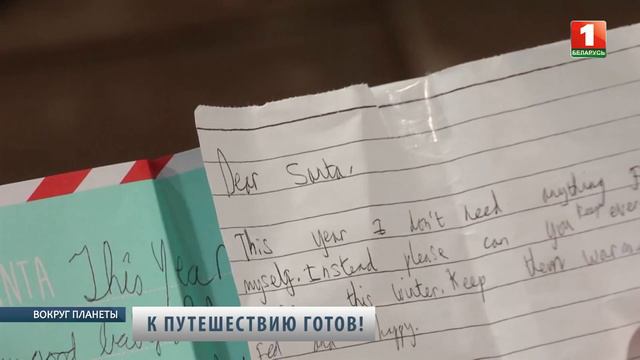 1
БЕЛАРУСЬ
Dear Santa,
This year I don't need anything
myself. Instead please can you keep
this winter. Keep them warm
happy.
NTA
This Year
good
ВОКРУГ ПЛАНЕТЫ
К ПУТЕШЕСТВИЮ ГОТОВ!